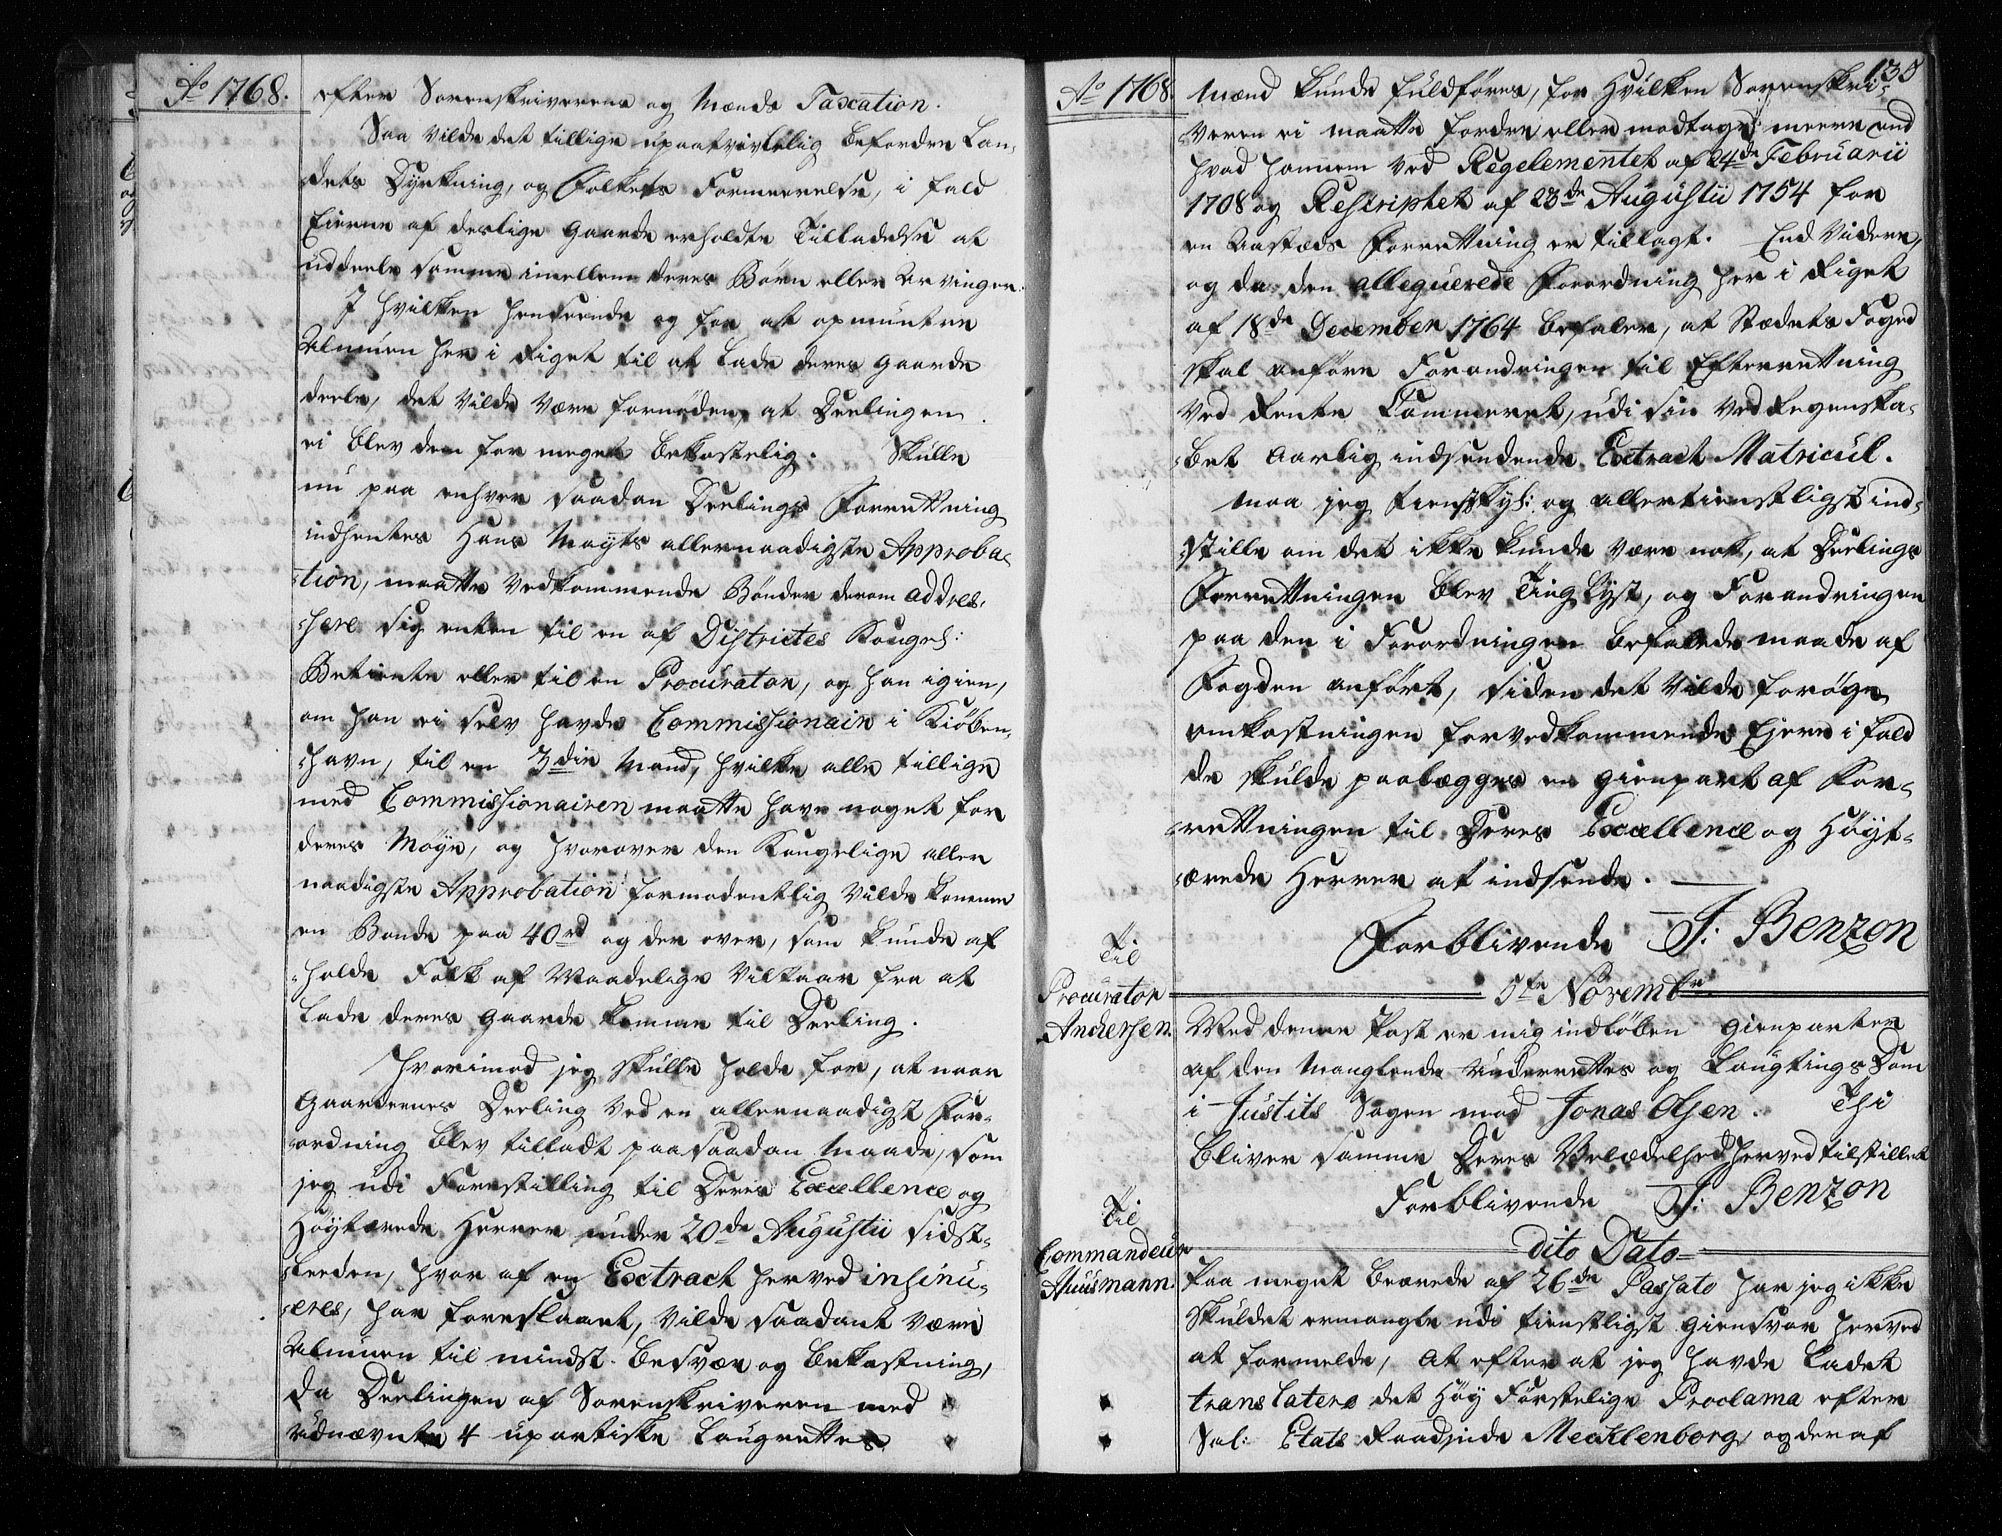 Ao 1768.
efter Sorenskriverens og Mænds Taxation.
Saa vilde det tillige upaatvivlelig befordre Lan-
dets Dyrkning, og Folkets Formeerelse, i fald
Eierne af deslige Gaarde erholdte Tilladelse at
uddeele samme imellem deres Børn eller Arvinger.
I hvilken henseende og for at opmuntre
Almuen her i Riget til at lade deres Gaarde
deele, det vilde være fornøden, at Deelingen
ei blev dem for meget bekostelig. Skulle
nu paa enhver saadan Deelings Forretning
indhentes Hans Mayts allernaadigste Approba-
-tion, maatte vedkommende Bønder derom addres-
-sere sig enten til en af Districtes Kongel:
Betiente eller til en Procurator, og han igien,
om han ei selv havde Commissionair i Kiøben-
-havn, til en 3die Mand, hvilke alle tillige
med Commissionairen maatte have noget for
deres Møye, og hvorover den Kongelige aller
naadigste Approbation formodentlig vilde komme
en Bonde paa 40 rd og der over, som kunde af
-holde Folk af Maadelige Vilkaar fra at
lade deres Gaarde komme til Deeling.
Hvorimod jeg skulle holde for, at naar
Gaardernes Deeling ved en allernaadigst For-
-ordning blev tilladt paa saadan Maade, som
jeg udi Forestilling til Deres Excellence og
Høytærede Herrer under 20de Augustii sidst-
-leeden, hvor af en Extract herved insinu-
-eres, har foreslaaet, vilde saadant være
Almuen til mindst besvær og bekostning,
da Deelingen af Sorenskriveren med
udnævnte 4 upartiske Laugrettes
Ao 1768.
130
Mænd kunde fuldføres, for hvilken Sorenskri-
-veren ei maatte fordre eller modtage meere end
hvad hannem ved Regelementet af 24de Februarii
1708 og Rescriptet af 23de Augustii 1754 for
en Aastæds Forretning er tillagt. End videre,
og da den allequerede Forordning her i Riget
af 18de December 1764 befaler, at Stædets Foged
skal anføre Forandringen til Efterretning
ved Rente Cammeret, udi sin ved Regenska-
-bet Aarlig indsendende Extract Matricul.
Maa jeg tienstskyl: og allertienstligst ind-
-stille om det ikke kunde være nok, at Deelings
Forretningen blev Ting lyst, og Forandringen
paa den i Forordningen befalede maade af
Fogden anført, siden det vilde forøge
omkostningen for vedkommende Ejere i fald
de skulde paalægges en gienpart af For-
-retningen til Deres Excellence og Høyt-
-ærede Herrer at indsende.
Forblivende J: Benzon
Til
Procurator
Andersen.
5te Novembr.
Med denne Post er mig indløben gienparter
af den manglende Underrettes og Laugtings Dom
i Justits Sagen mod Jonas Olsen. Thi
bliver samme Deres Velædelhed herved tilstillet
Forblivende J: Benzon
Til
Commandeur
Huusmann.
dito Dato
Paa meget beærede af 26de Passato har jeg ikke
skuldet ermangle udi tienstligst giensvar herved
at formelde, At efter at jeg havde ladet
translatere det Høy Fürstelige Proclama efter
Sal: Etats Raadinde Mecklenborg, og deraf